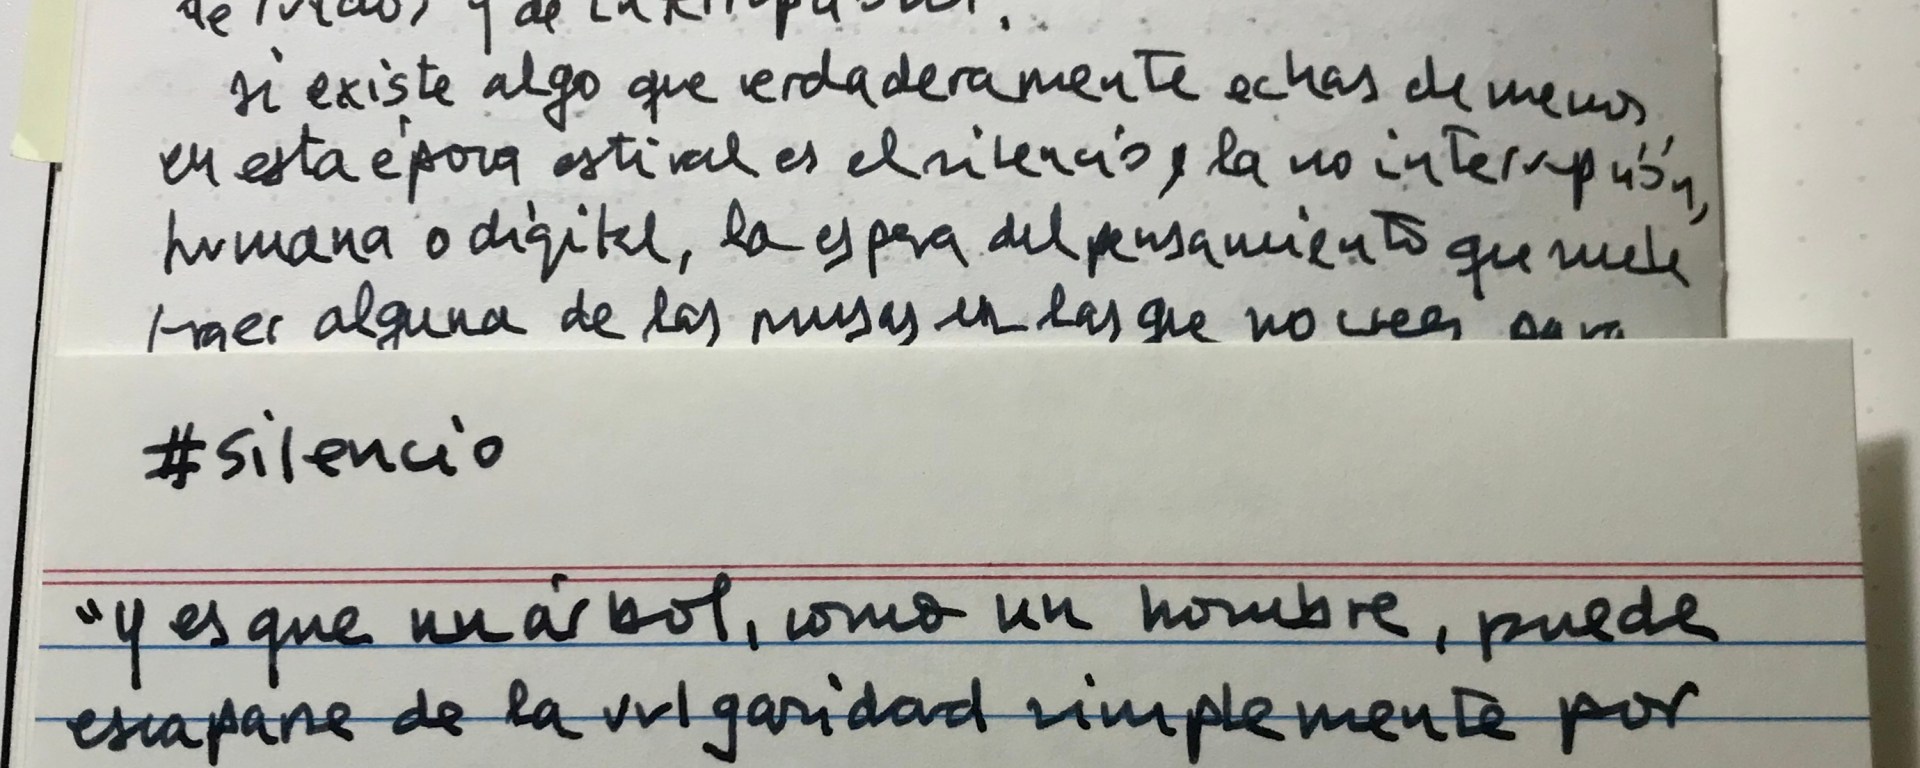 si existe algo que verdaderamente echas de menos
en esta época estival es el silencio, la no interrupción,
humana o digital, la espera del pensamiento que suele
traer alguna de las musas en las que no crees para
#silencio
"y es que un árbol, como un hombre, puede
escaparse de la vulgaridad simplemente por